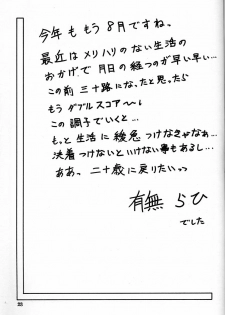 今年ももう8月ですね。
最近はメリハリのない生活の
おかげで月日の経つのが早い早い…
この前三十路になったと思ったら
もうダブルスコア〜!
この調子でいくと…
もっと生活に緩急つけなきゃなぁ…
決着つけないといけない事もあるし…
ああ、二十歳に戻りたいっ
有無らひ
でした